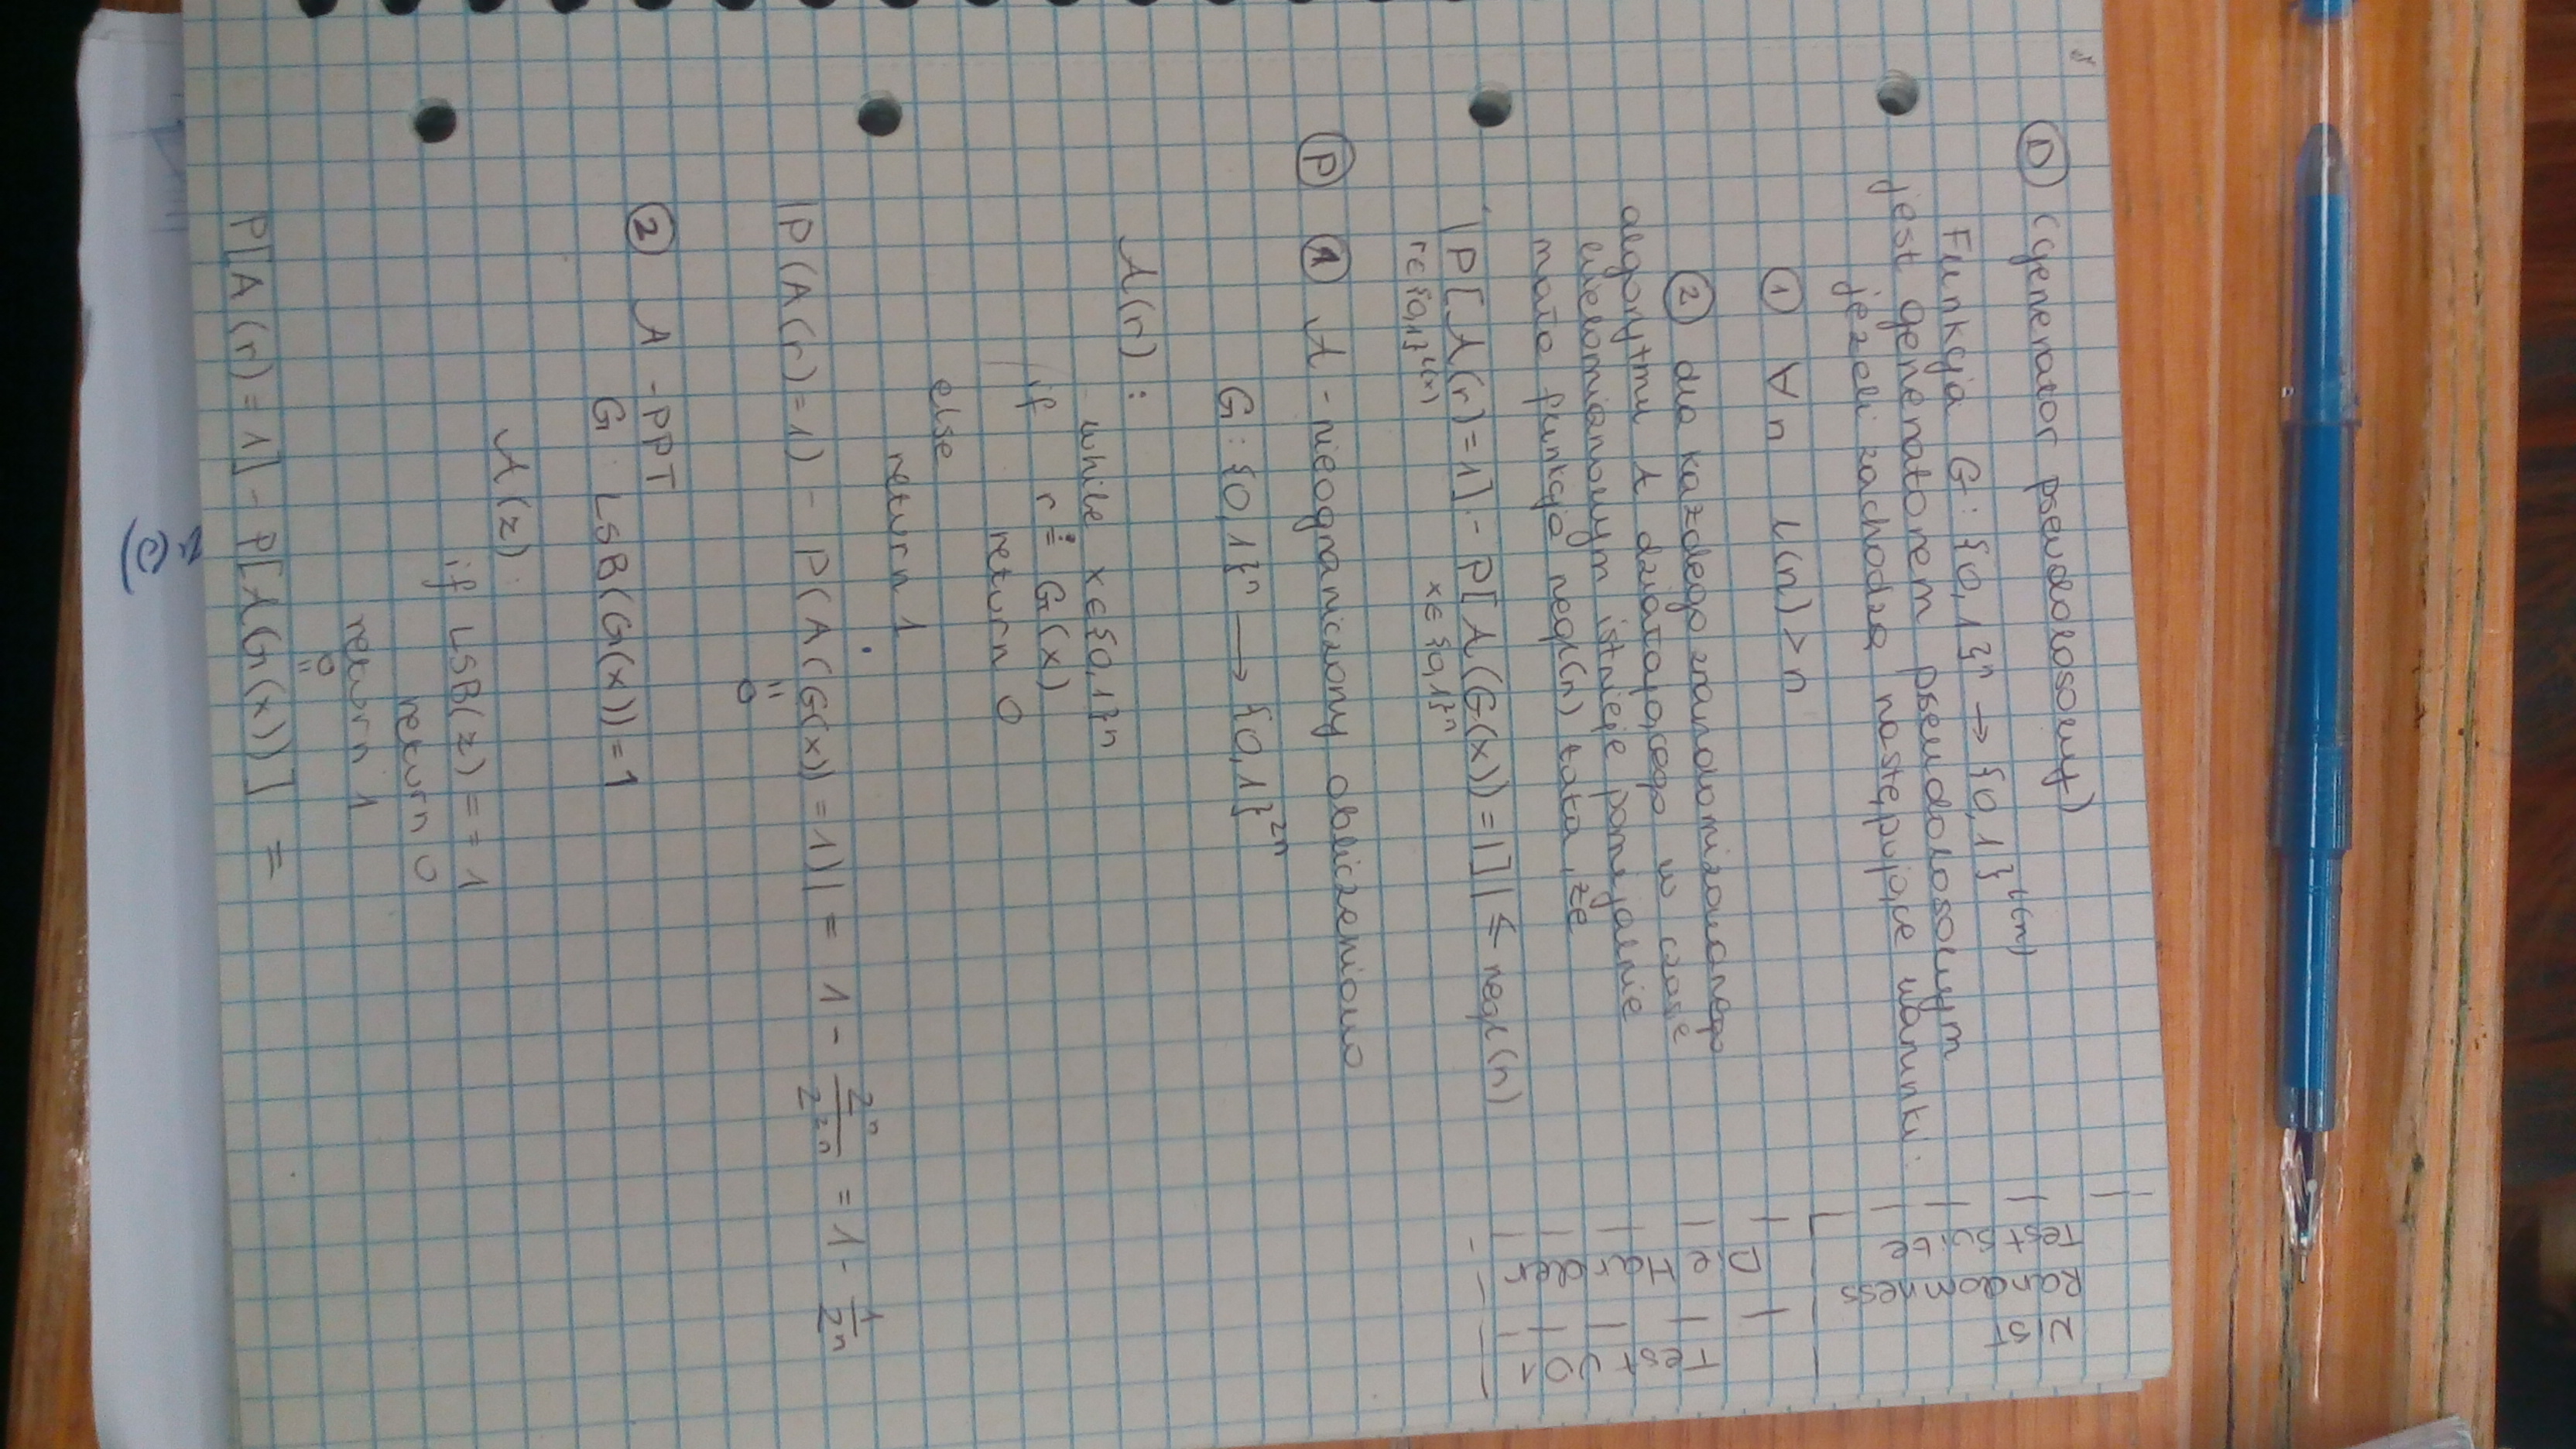 D (generator pseudolosowy)
Funkcja G: {0,1}ⁿ → {0,1}^l(n)
jest generatorem pseudolosowym
jeżeli zachodzą następujące warunki:
① ∀n l(n) > n
② dla każdego zrandomizowanego
algorytmu A działającego w czasie
wielomianowym istnieje pomijalnie
mała funkcja negl(n) taka, że
|P[A(r)=1] - P[A(G(x))=1]| ≤ negl(n)
r∈{0,1}^l(n) x∈{0,1}ⁿ
P ① A - nieograniczony obliczeniowo
G: {0,1}ⁿ → {0,1}²ⁿ
A(r):
while x∈{0,1}ⁿ
if r ≟ G(x)
return 0
else
return 1
|P(A(r)=1) - P(A(G(x))=1)| = 1 - 2ⁿ/2²ⁿ = 1 - 1/2ⁿ
"
0
② A - PPT
G LSB(G(x))=1
A(z):
if LSB(z) == 1
return 0
return 1
"
0
P[A(r)=1] - P[A(G(x))] =
NIST
Randomness
Test Suite
DieHarder
TestU01